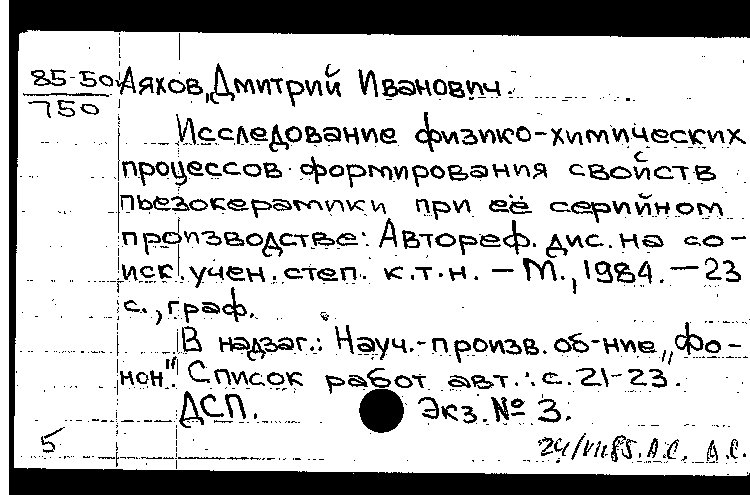 85-50
750
Аяхов, Дмитрий Иванович.
Исследование физико-химических
процессов формирования свойств
пьезокерамики при её серийном
производстве: Автореф. дис. на со-
иск. учен. степ. к.т.н. – М., 1984. – 23
с., граф.
В надзаг.: Науч.-произв. об-ние „Фо-
нон". Список работ авт.: с. 21-23.
ДСП. Экз. № 3.
5
24/VII85. А.С. А.С.